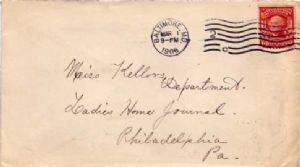 BALTIMORE, MD.
MAR 1
9-PM
1906
Miss Kellon
Department.
Ladies Home Journal.
Philadelphia
Pa.